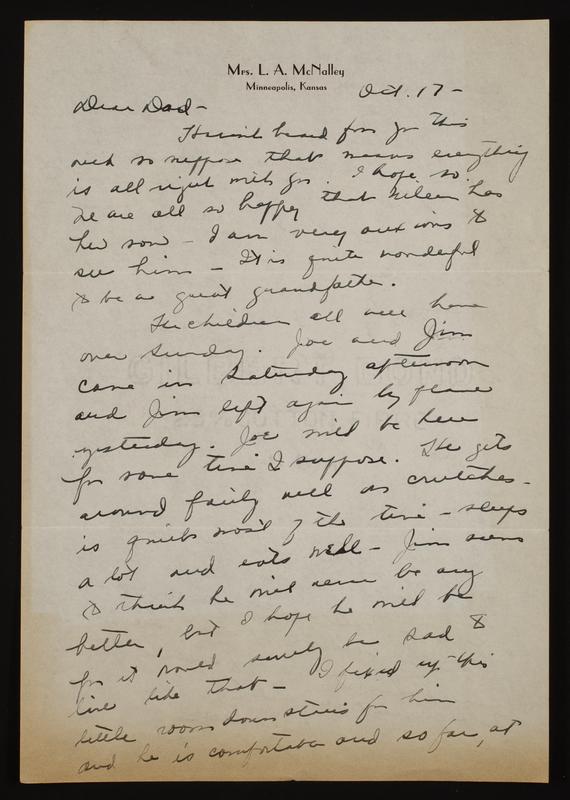 Mrs. L. A. McNalley
Minneapolis, Kansas
Oct. 17 -
Dear Dad -
Haven't heard from you this
week so suppose that means everything
is all right with you. I hope so.
We are all so happy that has
her son - I am very anxious to
see him - It is quite wonderful
to be a great grandfather.
The children all were home
over Sunday. Joe and Jim
came in Saturday afternoon
and Jim left again by plane
yesterday. Joe will be here
for some time I suppose. He gets
around fairly well on crutches -
is quiet most of the time - sleeps
a lot and eats well - Jim seems
to think he will never be any
better, but I hope he will be
for it would surely be sad to
live like that - I fixed up this
little room down stairs for him
and he is comfortable and so far, at